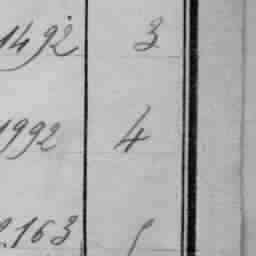 1492 3
1992 4
2.163